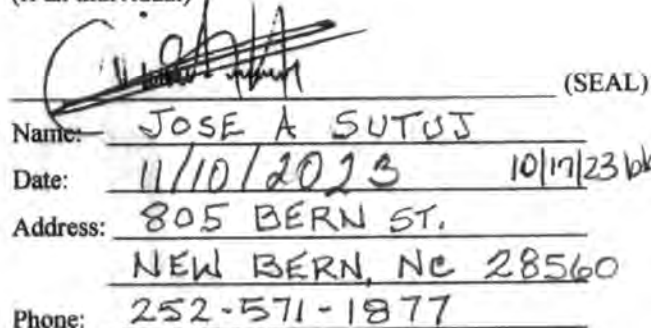 (SEAL)
Name: JOSE A SUTUJ
Date: 11/10/2023 10/17/23 bk
Address: 805 BERN ST.
NEW BERN, NC 28560
Phone: 252-571-1877